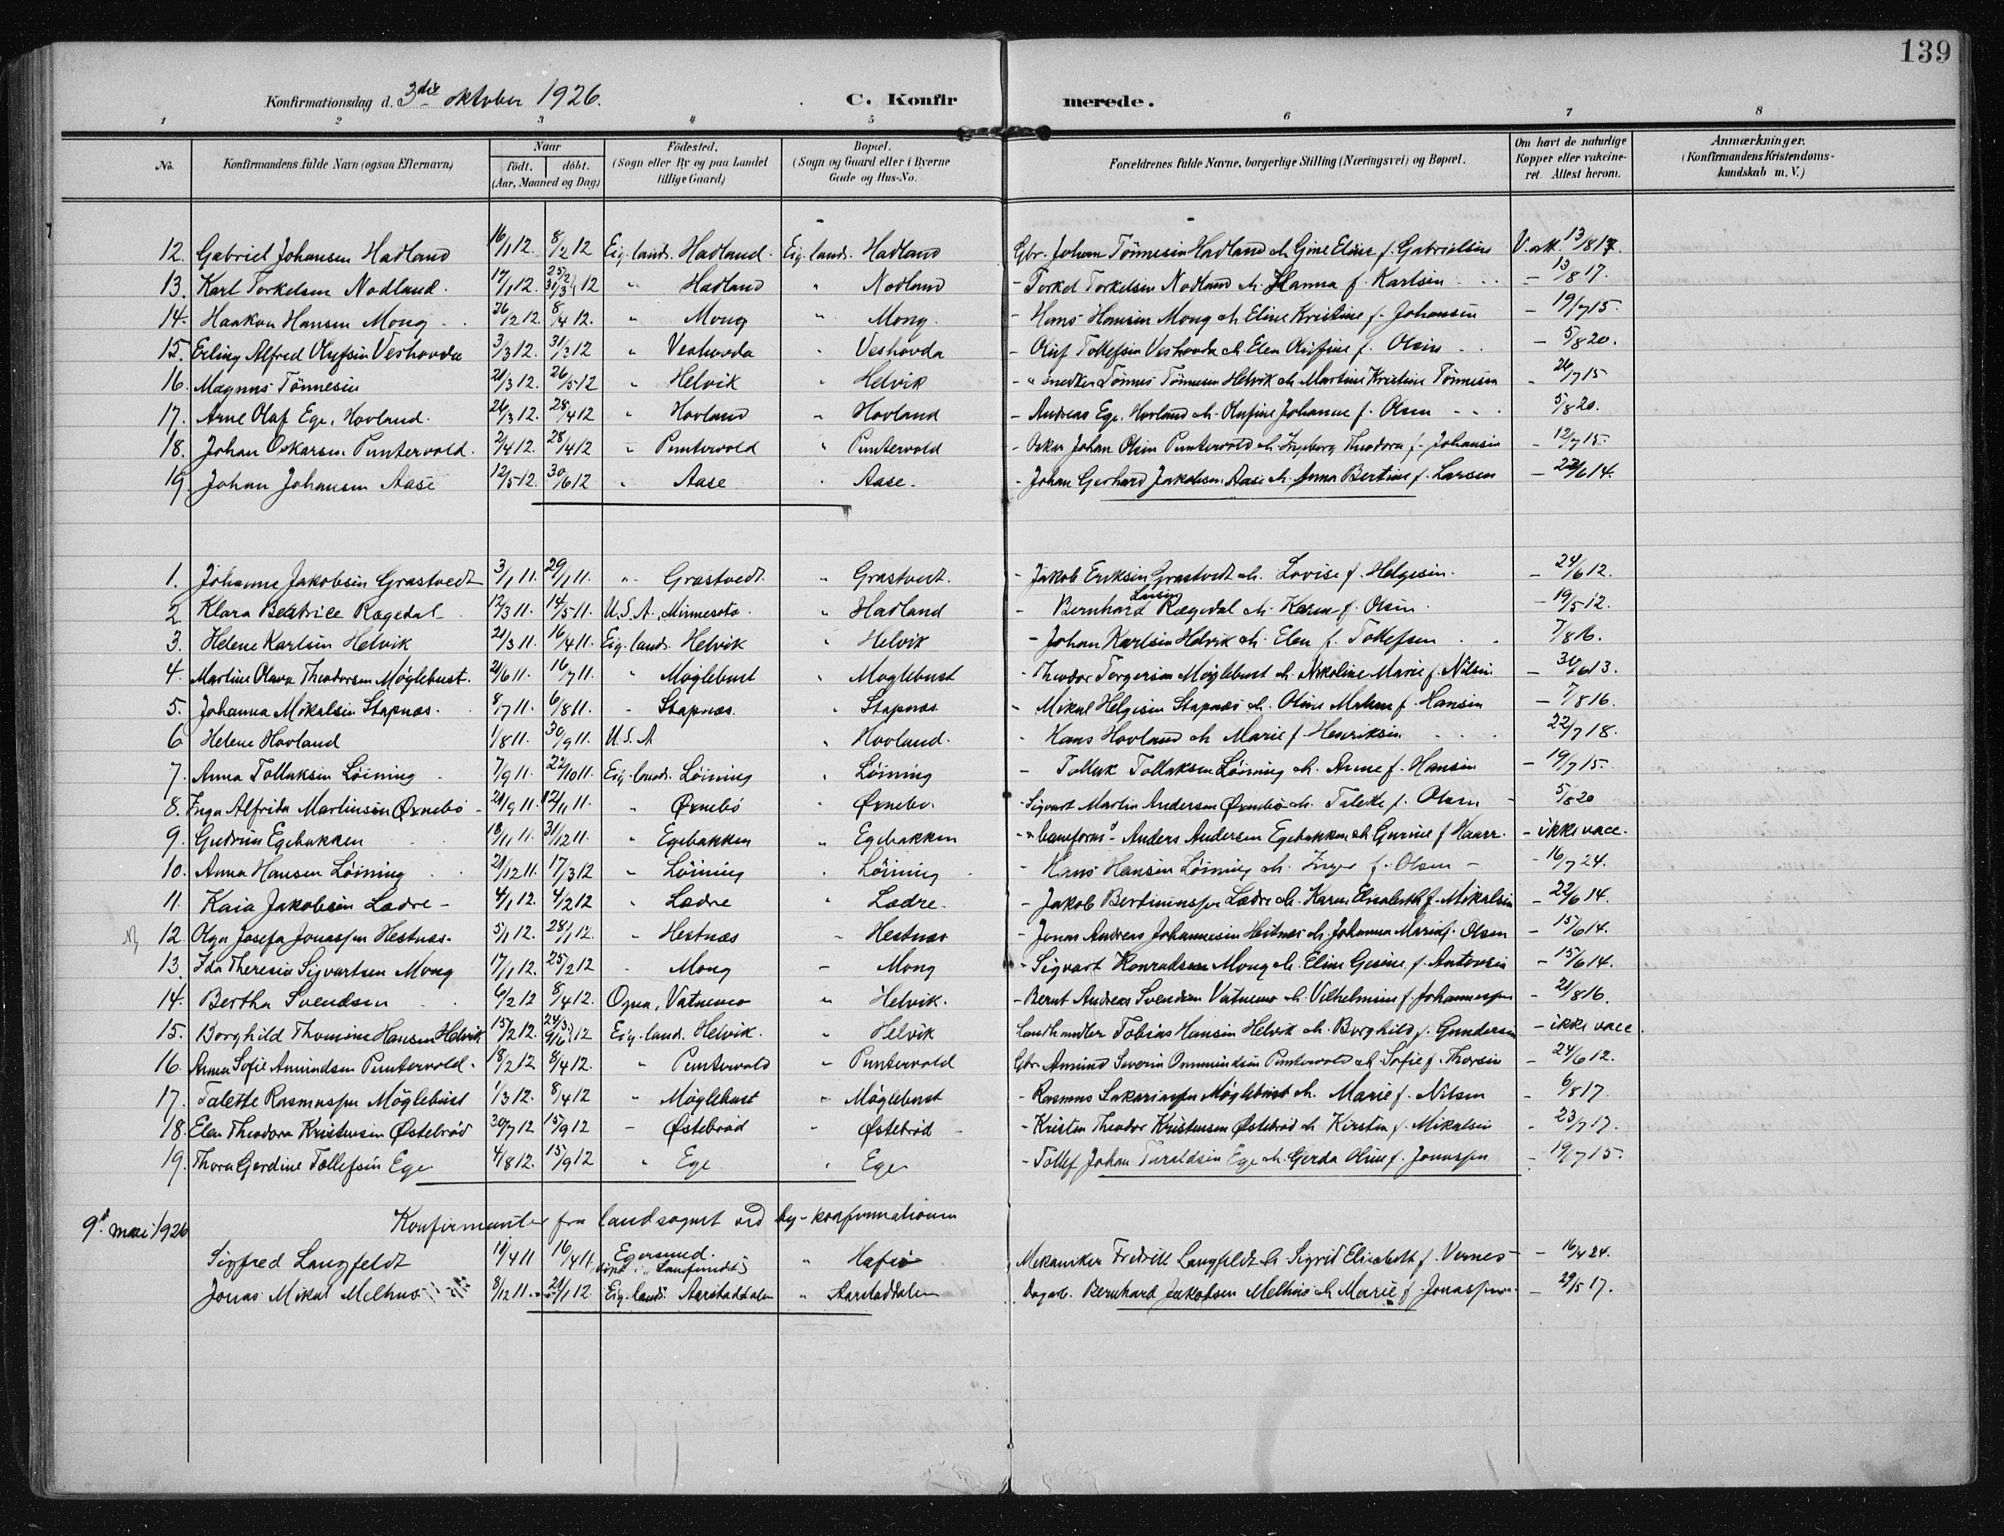 139
Konfirmationsdag d. 3die oktober 1926. C. Konfirmerede.
1 2 3 4 5 6 7 8
No. Konfirmandens fulde Navn (ogsaa Efternavn) Naar födt. döbt. (Aar, Maaned og Dag) Födested. (Sogn eller By og paa Landet tillige Gaard) Bopæl. (Sogn og Gaard eller i Byerne Gade og Hus-No. Forældrenes fulde Navne, borgerlige Stilling (Næringsvei) og Bopæl. Om havt de naturlige Kopper eller vakcineret. Attest herom. Anmærkninger. (Konfirmandens Kristendomskundskab m. V.)
12. Gabriel Johansen Hadland 16/1 12. 8/2 12 Eig. lands. Hadland. Eig. lands. Hadland Gbr. Johan Tönnesen Hadland & Gine Eline f. Gabrielsen V. att. 13/8 17.
13. Karl Torkelsen Nodland. 17/1 12. 25/2 31/3 12 " Hadland " Nodland - Torkel Torkelsen Nodland & Hanna f. Karlsen - 13/8 17.
14. Haakon Hansen Mong 26/2 12. 8/4 12. " Mong " Mong. - Hans Hansen Mong & Eline Kristine f. Johansen - 19/7 15.
15. Erling Alfred Olufsen Veshovda 3/3 12. 31/3 12 " Veshovda " Veshovda - Oluf Tollefsen Veshovda & Elen Olufine f. Olsen - 5/8 20.
16. Magnus Tönnesen 21/3 12. 26/5 12 " Helvik " Helvik - " snedker Tönnes Tönnesen Helvik & Martine Kristine Tönnesen - 26/7 15
17. Arne Olaf Ege, Hovland. 26/3 12. 28/4 12 " Hovland " Hovland - Andreas Ege, Hovland & Olufine Johanne f. Olsen - 5/8 20.
18. Johan Oskarsen Puntervold. 2/4 12. 28/4 12 " Puntervold " Puntervold - Oskar Johan Olsen Puntervold & Ingeborg Theodora f. Johansen - 12/7 15.
19. Johan Johansen Aase 12/5 12. 30/6 12 " Aase " Aase. - Johan Gerhard Jakobsen Aase & Anna Bertine f. Larsen - 22/6 14.
1. Johanne Jakobsen Grastvedt 3/1 11. 29/1 11. " Grastvedt. " Grastvedt. - Jakob Eriksen Grastvedt & Lovise f. Helgesen. - 24/6 12.
2. Klara Beatrice Rægedal 12/3 11. 14/5 11. U.S.A. Minnesota " Hadland - Bernhard Rægedal & Karen f. Olsen. - 19/5 12.
3. Helene Karlsen Helvik 21/3 11. 16/4 11. Eig. lands. Helvik " Helvik - Johan Karlsen Helvik & Elen f. Tollefsen - 7/8 16.
4. Martine Olava Theodorsen Møglebust. 21/6 11. 16/7 11. " Møglebust " Møglebust - Theodor Torgersen Møglebust & Nikoline Marie f. Nilsen - 30/6 13.
5. Johanna Mikalsen Stapnæs. 8/7 11. 6/8 11. " Stapnæs. " Stapnæs - Mikal Helgesen Stapnæs & Oline Malene f. Hansen - 7/8 16.
6. Helene Hovland 1/8 11. 30/9 11. U.S.A " Hovland. - Hans Hovland & Marie f. Henriksen - 22/7 18.
7. Anna Tollaksen Löining 7/9 11. 22/10 11. Eig. lands. Löining " Löining - Tollak Tollaksen Löining & Anne f. Hansen - 19/7 15.
8. Inga Alfrida Martinsen Ørnebö 21/9 11. 12/11 11. " Ørnebö " Ørnebö. - Sigvart Martin Andersen Ørnebö & Talette f. Olsen - 5/8 20
9. Gudrun Egebakken 18/11 11. 31/12 11. " Egebakken " Egebakken - " baneform. - Anders Andersen Egebakken & Gurine f. Haarr. - ikke vacc.
10. Anna Hansen Löining 21/12 11. 17/3 12 " Löining " Löining - Hans Hansen Löining & Inger f. Olsen - 16/7 24.
11. Kaia Jakobsen Lædre 4/1 12. 4/2 12 " Lædre " Lædre. - Jakob Bertinussen Lædre & Karen Elisabeth f. Mikalsen - 22/6 14.
12. Olga Josefa Jonassen Hestnæs. 5/1 12. 28/1 12. " Hestnæs " Hestnæs - Jonas Andreas Johannesen Hestnæs & Johanna Marie f. Olsen - 15/6 14.
13. Ida Theresie Sigvartsen Mong 17/1 12. 25/2 12 " Mong " Mong - Sigvart Konradsen Mong & Eline Gesine f. Antonsen - 15/6 14.
14. Bertha Svendsen 6/2 12 8/4 12. Ogna, Vatnemo " Helvik. - Bernt Andreas Svendsen Vatnemo & Vilhelmine f. Johannessen - 21/8 16.
15. Borghild Thomine Hansen Helvik 15/2 12. 24/3 9/6 12 Eig. land. Helvik. " Helvik Landhandler Tobias Hansen Helvik & Borghild f. Gundersen - ikke vacc.
16. Anna Sofie Amundsen Puntervold. 18/2 12 8/4 12. " Puntervold " Puntervold Gbr. Amund Severin Ommundsen Puntervold & Sofie f. Thorsen - 24/6 12.
17. Talette Rasmussen Møglebust 1/3 12. 8/4 12 " Møglebust " Møglebust - Rasmus Sakariassen Møglebust & Marie f. Nilsen - 6/8 17.
18. Elen Theodora Kristensen Østebröd 20/7 12 15/9 12 " Østebröd " Østebröd - Kristen Theodor Kristensen Østebröd & Kirstin f. Mikalsen - 23/7 17.
19. Thora Gerdine Tollefsen Ege 4/8 12. 15/9 12 " Ege " Ege - Tollef Johan Taraldsen Ege & Gerda Oline f. Jonassen - 19/7 15.
9d mai 1926 Konfirmanter fra landsognet ved by-konfirmationen
Sigfred Langfeldt 11/4 11 16/4 11. Egersund. " Hafsö Mekaniker Fredrik Langfeldt & Sigrid Elisabeth f. Vernes - 16/4 24.
Jonas Mikal Melhus 8/12 11. 21/1 12. Eig. lands. Aarstaddalen " Aarstaddalen Dagarb. Bernhard Jakobsen Melhus & Marie f. Jonassen - 29/5 17.